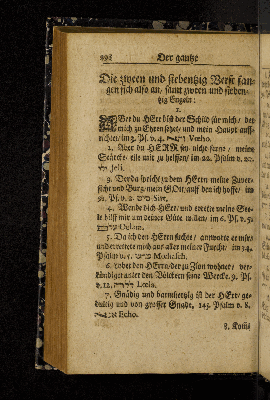 898 Der gantze
Die zween und siebentzig Verse fan-
gen sich also an, samt zween und sieben-
tzig Engeln:
1.
Aber du HErr bist der Schild für mich / der
mich zu Ehren setzet / und mein Haupt auff-
richtet / im 3. Ps. v. 4.
2. Aber du HERR sey nicht ferne / meine
Stärcke / eile mir zu helffen / im 22. Psalm v. 20.
3. Der da spricht zu dem HErrn meine Zuver-
sicht und Burg / mein GOtt / auff den ich hoffe / im
91. Ps. v. 2.
4. Wende dich HErr / und errette meine See-
le hilff mir um deiner Güte willen / im 6. Ps. v. 5.
5. Da ich den HErrn suchte / antwortet er mir
und errettete mich aus aller meiner Furcht / im 34.
Psalm v. 5.
6. Lobet den HErrn / der zu Zion wohnet / ver-
kündiget unter den Völckern seine Wercke. 9. Ps.
v. 12.
7. Gnädig und barmhertzig ist der HErr / ge-
dultig und von grosser Gnade, 145. Psalm v. 8.
8. Komt